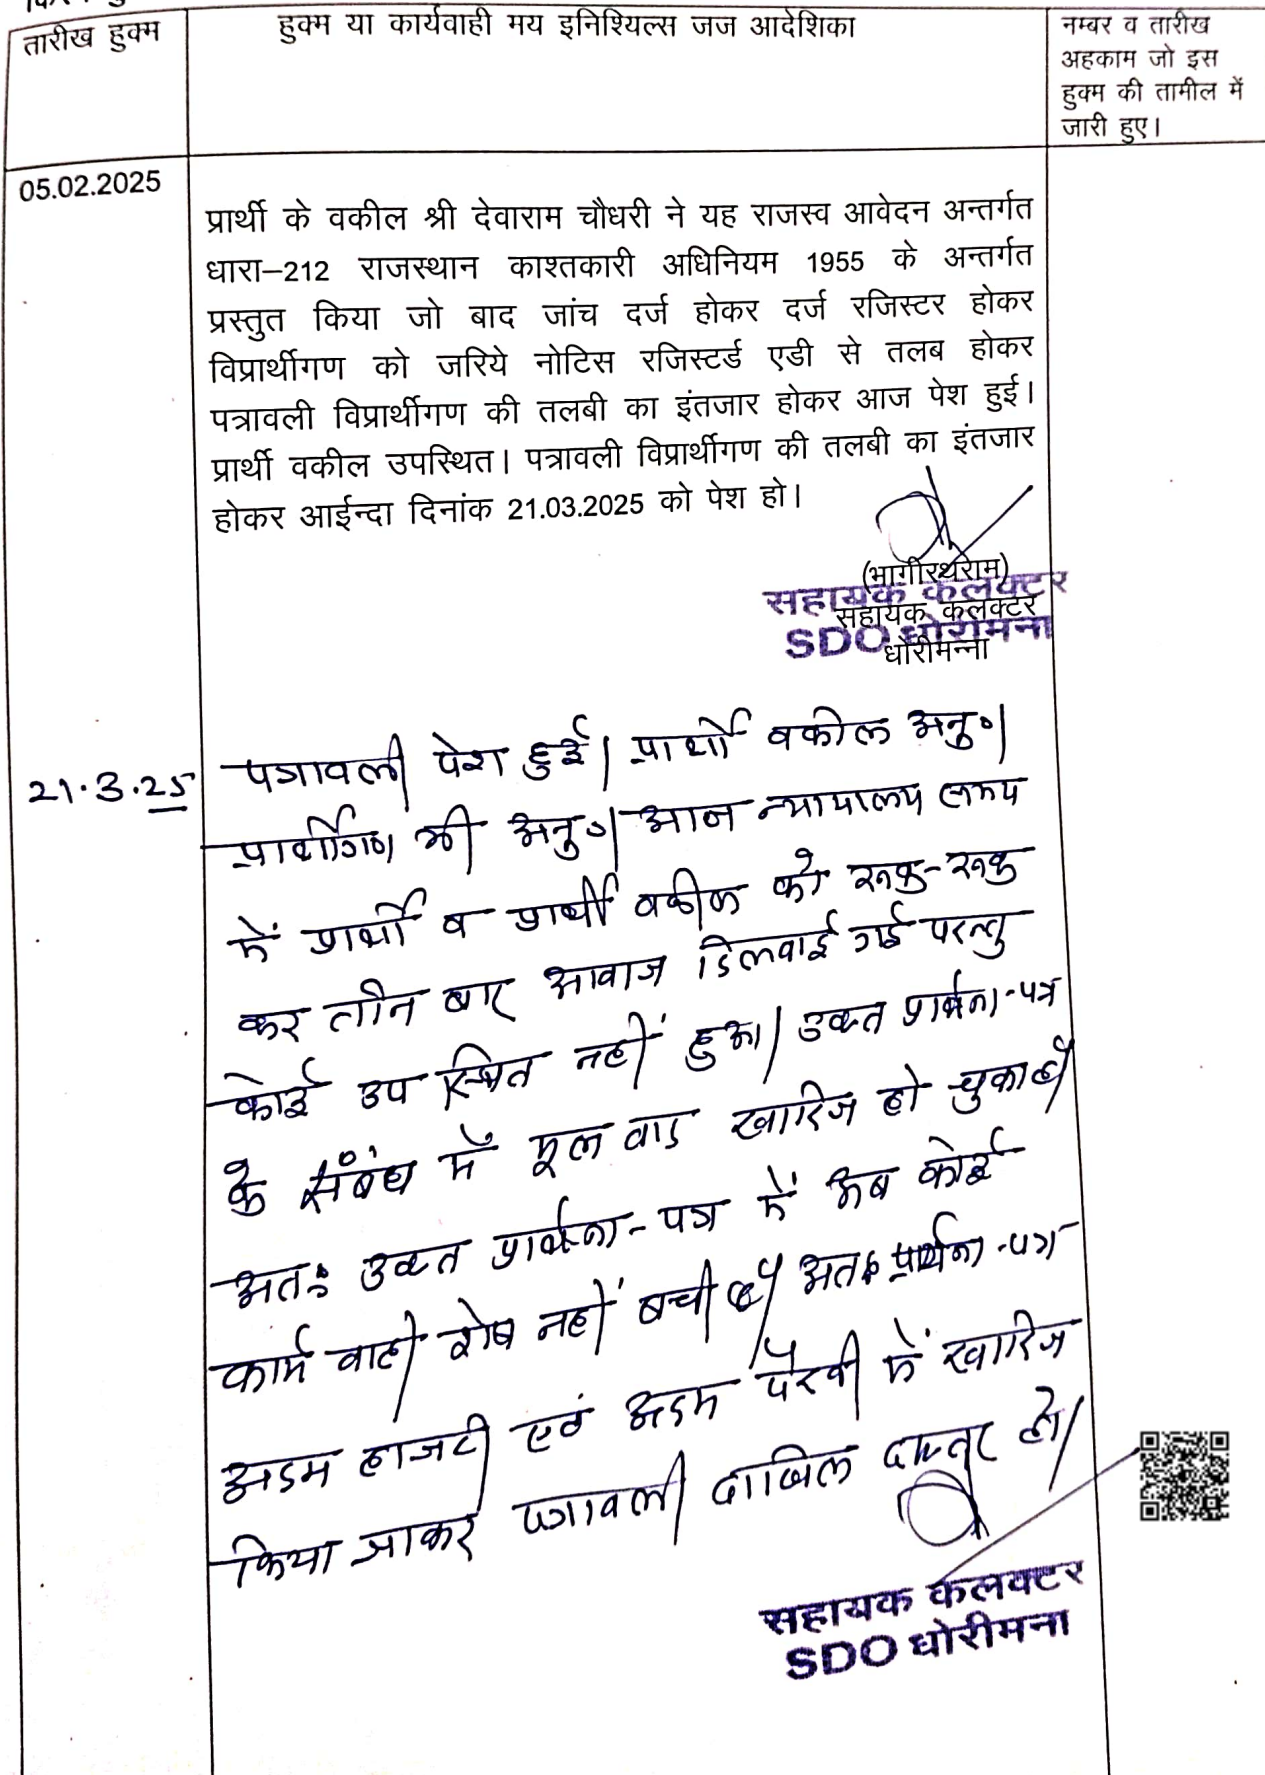 तारीख हुक्म
हुक्म या कार्यवाही मय इनिश्यिल्स जज आदेशिका
नम्बर व तारीख
अहकाम जो इस
हुक्म की तामील में
जारी हुए।
05.02.2025
प्रार्थी के वकील श्री देवाराम चौधरी ने यह राजस्व आवेदन अन्तर्गत
धारा–212 राजस्थान काश्तकारी अधिनियम 1955 के अन्तर्गत
प्रस्तुत किया जो बाद जांच दर्ज होकर दर्ज रजिस्टर होकर
विप्रार्थीगण को जरिये नोटिस रजिस्टर्ड एडी से तलब होकर
पत्रावली विप्रार्थीगण की तलबी का इंतजार होकर आज पेश हुई।
प्रार्थी वकील उपस्थित। पत्रावली विप्रार्थीगण की तलबी का इंतजार
होकर आईन्दा दिनांक 21.03.2025 को पेश हो।
(भागीरथराम)
सहायक कलक्टर
सहायक कलक्टर
SDO धोरीमना
धोरीमन्ना
21.3.25
पत्रावली पेश हुई। प्रार्थी वकील अनु०।
प्रार्थीगण भी अनु०। आज न्यायालय समय
में प्रार्थी व प्रार्थी वकील को रूक-रूक
कर तीन बार आवाज दिलवाई गई परन्तु
कोई उपस्थित नहीं हुआ। उक्त प्रार्थना-पत्र
के संबंध में मूल वाद खारिज हो चुका है।
अतः उक्त प्रार्थना-पत्र में अब कोई
कार्यवाही शेष नहीं बची है। अतः प्रार्थना-पत्र
अदम हाजरी एवं अदम पैरवी में खारिज
किया जाकर पत्रावली दाखिल दफ्तर हो।
सहायक कलक्टर
SDO धोरीमना